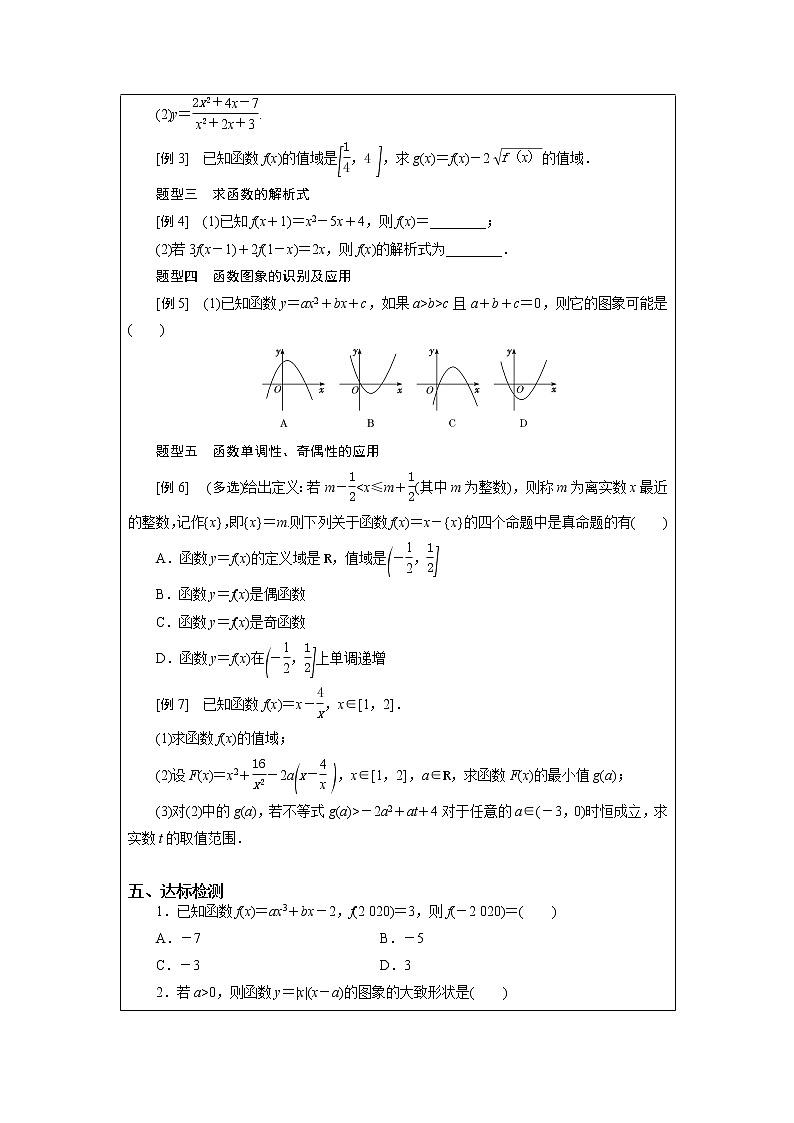 (2)y=\frac{2x²+4x-7}{x²+2x+3}.
[例3]　已知函数 f(x)的值域是[\frac{1}{4}，4]，求 g(x)=f(x)-2\sqrt{f（x）}的值域．
题型三　求函数的解析式
[例4]　(1)已知 f(x+1)=x²-5x+4，则 f(x)=________；
(2)若 3f(x-1)+2f(1-x)=2x，则 f(x)的解析式为________．
题型四　函数图象的识别及应用
[例5]　(1)已知函数 y=ax²+bx+c，如果 a>b>c 且 a+b+c=0，则它的图象可能是
(　　)
y O x　y O x　y O x　y O x
A　B　C　D
题型五　函数单调性、奇偶性的应用
[例6]　(多选)给出定义：若 m-\frac{1}{2}<x≤m+\frac{1}{2}(其中 m 为整数)，则称 m 为离实数 x 最近
的整数，记作{x}，即{x}=m.则下列关于函数 f(x)=x-{x}的四个命题中是真命题的有(　　)
A．函数 y=f(x)的定义域是 R，值域是(-\frac{1}{2}，\frac{1}{2}]
B．函数 y=f(x)是偶函数
C．函数 y=f(x)是奇函数
D．函数 y=f(x)在(-\frac{1}{2}，\frac{1}{2}]上单调递增
[例7]　已知函数 f(x)=x-\frac{4}{x}，x∈[1，2]．
(1)求函数 f(x)的值域；
(2)设 F(x)=x²+\frac{16}{x²}-2a(x-\frac{4}{x})，x∈[1，2]，a∈R，求函数 F(x)的最小值 g(a)；
(3)对(2)中的 g(a)，若不等式 g(a)>-2a²+at+4 对于任意的 a∈(-3，0)时恒成立，求
实数 t 的取值范围．
五、达标检测
1．已知函数 f(x)=ax³+bx-2，f(2 020)=3，则 f(-2 020)=(　　)
A．-7　B．-5
C．-3　D．3
2．若 a>0，则函数 y=|x|(x-a)的图象的大致形状是(　　)